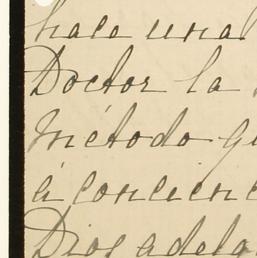 hace una
Doctor la
método qu
á concienc
Dios adela